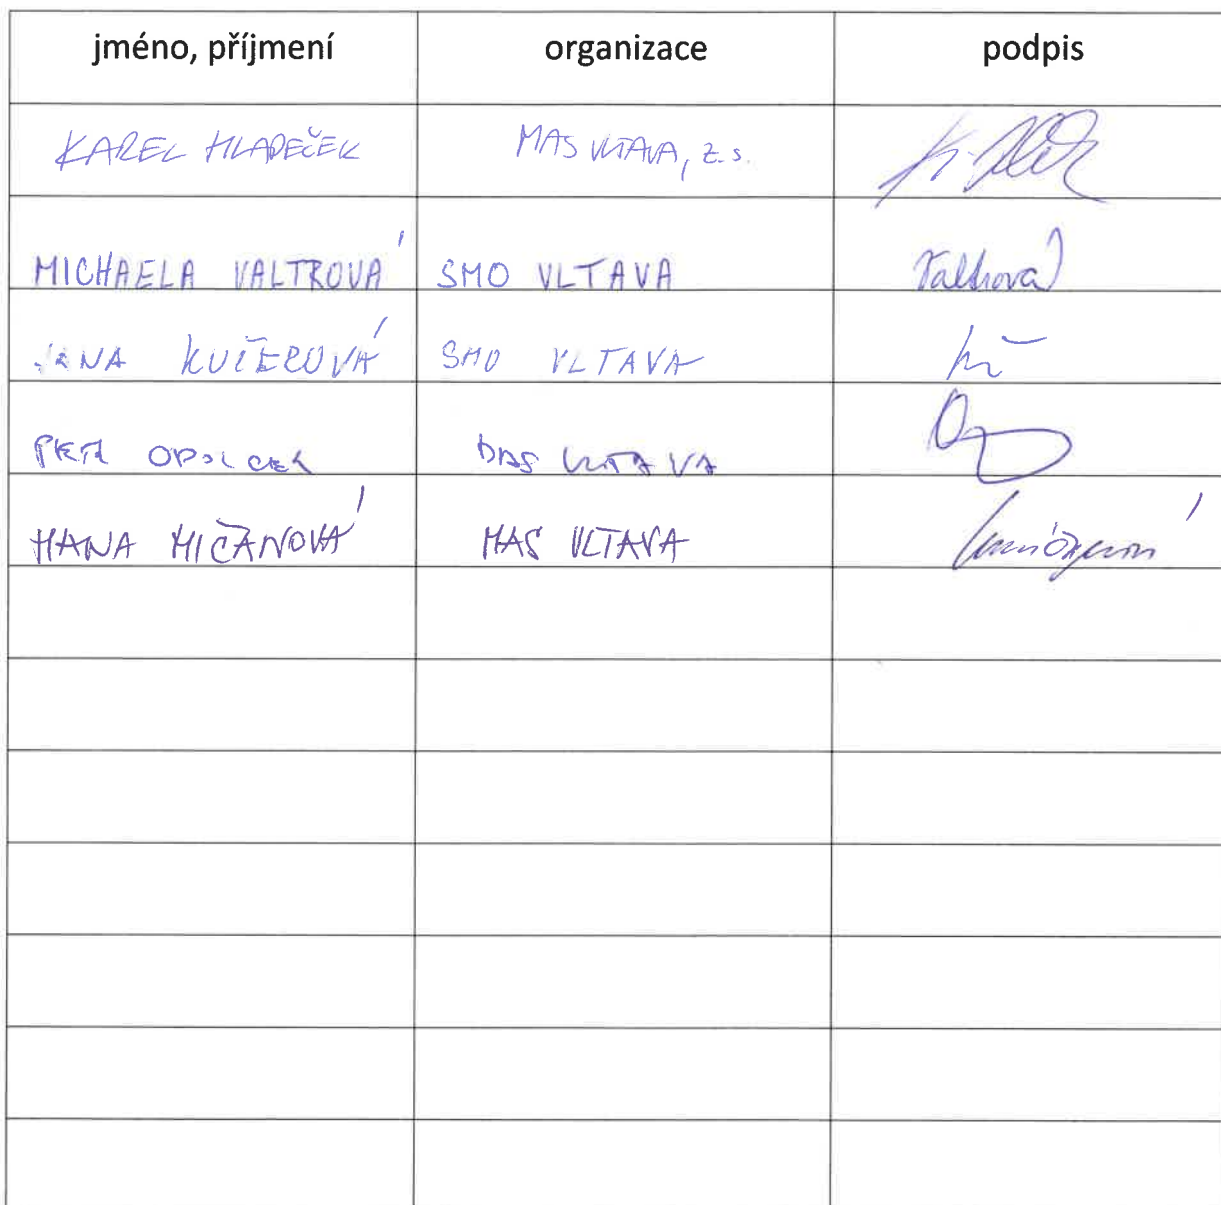 jméno, příjmení organizace podpis
KAREL HLADEČEK MAS VLTAVA, z.s.
MICHAELA VALTROVÁ SMO VLTAVA Valtrová
JANA KUČEROVÁ SMO VLTAVA
PETR MAS VLTAVA
HANA MIČANOVÁ MAS VLTAVA